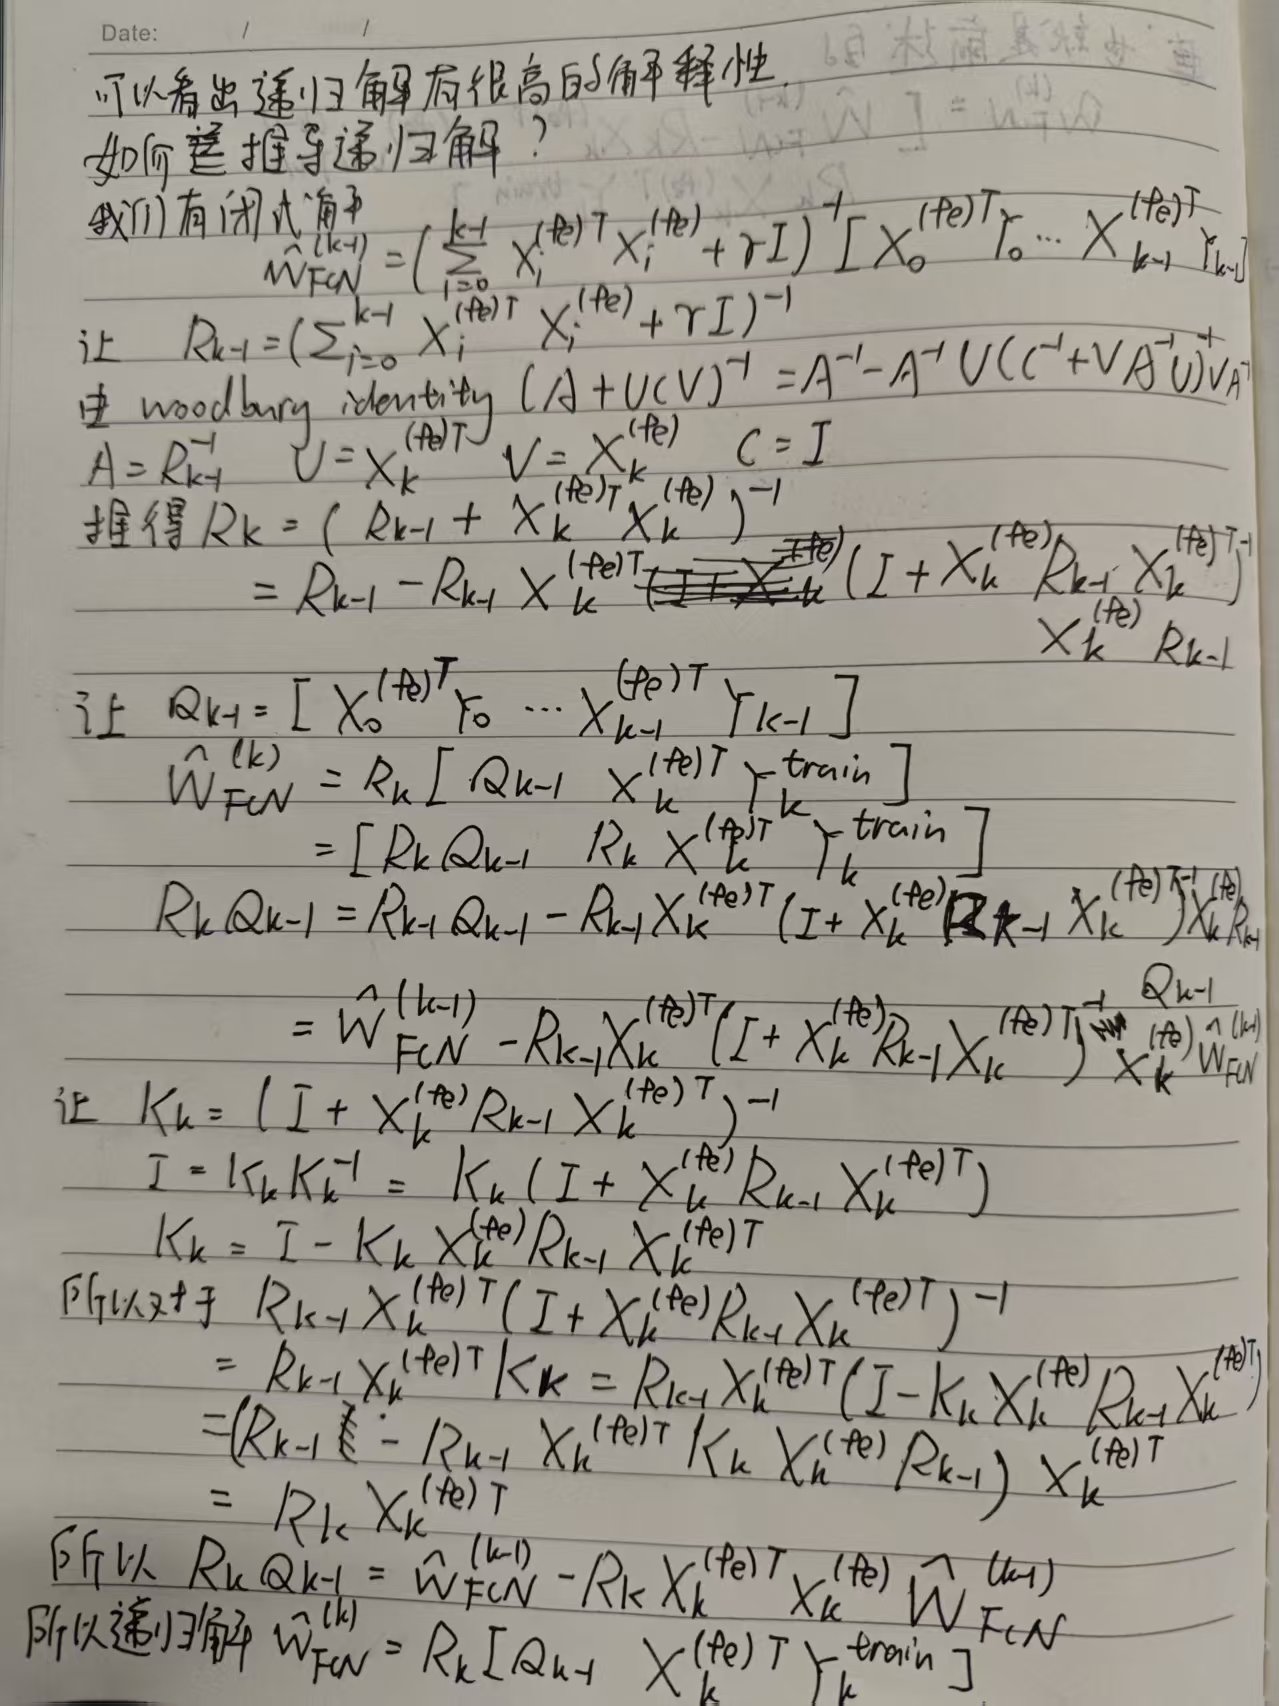 Date: / /
可以看出递归解有很高的解释性.
如何推导递归解?
我们有闭式解
Ŵ_FCN^(k-1) = (∑_{i=0}^{k-1} X_i^(fe)T X_i^(fe) + γI)^-1 [X_0^(fe)T Y_0 ... X_{k-1}^(fe)T Y_{k-1}]
让 R_{k-1} = (∑_{i=0}^{k-1} X_i^(fe)T X_i^(fe) + γI)^-1
由 woodbury identity (A+UCV)^-1 = A^-1 - A^-1 U(C^-1 + VA^-1U)^-1 VA^-1
A = R_{k-1}^-1 U = X_k^(fe)T V = X_k^(fe) C = I
推得 R_k = (R_{k-1} + X_k^(fe)T X_k^(fe))^-1
= R_{k-1} - R_{k-1} X_k^(fe)T (I + X_k^(fe) R_{k-1} X_k^(fe)T)^-1
X_k^(fe) R_{k-1}
让 Q_{k-1} = [X_0^(fe)T Y_0 ... X_{k-1}^(fe)T Y_{k-1}]
Ŵ_FCN^(k) = R_k [Q_{k-1} X_k^(fe)T Y_k^train]
= [R_k Q_{k-1} R_k X_k^(fe)T Y_k^train]
R_k Q_{k-1} = R_{k-1} Q_{k-1} - R_{k-1} X_k^(fe)T (I + X_k^(fe) R_{k-1} X_k^(fe)T)^-1 X_k^(fe) R_{k-1}
Q_{k-1}
= Ŵ_FCN^(k-1) - R_{k-1} X_k^(fe)T (I + X_k^(fe) R_{k-1} X_k^(fe)T)^-1 X_k^(fe) Ŵ_FCN^(k-1)
让 K_k = (I + X_k^(fe) R_{k-1} X_k^(fe)T)^-1
I = K_k K_k^-1 = K_k (I + X_k^(fe) R_{k-1} X_k^(fe)T)
K_k = I - K_k X_k^(fe) R_{k-1} X_k^(fe)T
所以对于 R_{k-1} X_k^(fe)T (I + X_k^(fe) R_{k-1} X_k^(fe)T)^-1
= R_{k-1} X_k^(fe)T K_k = R_{k-1} X_k^(fe)T (I - K_k X_k^(fe) R_{k-1} X_k^(fe)T)
= (R_{k-1} - R_{k-1} X_k^(fe)T K_k X_k^(fe) R_{k-1}) X_k^(fe)T
= R_k X_k^(fe)T
所以 R_k Q_{k-1} = Ŵ_FCN^(k-1) - R_k X_k^(fe)T X_k^(fe) Ŵ_FCN^(k-1)
所以递归解 Ŵ_FCN^(k) = R_k [Q_{k-1} X_k^(fe)T Y_k^train]